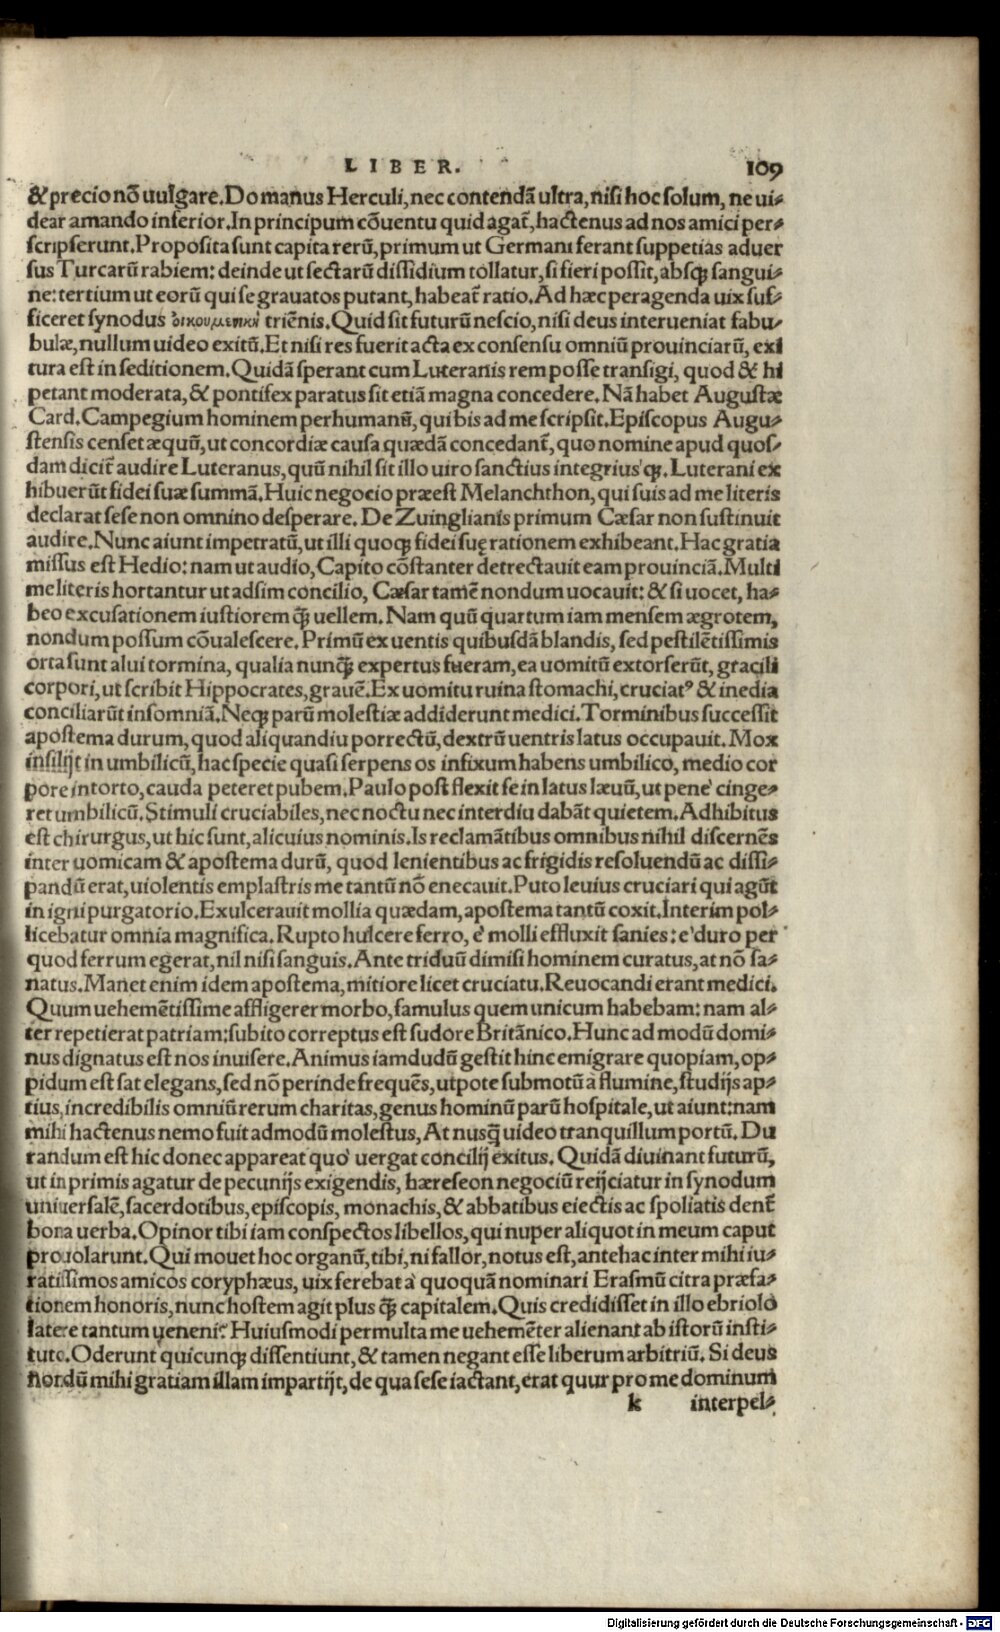 LIBER. 109
& precio nõ uulgare. Do manus Herculi, nec contendã ultra, nisi hoc solum, ne ui⸗
dear amando inferior. In principum cõuentu quid agat̃, hactenus ad nos amici per⸗
scripserunt. Proposita sunt capita rerũ, primum ut Germani ferant suppetias aduer
sus Turcarũ rabiem: deinde ut sectarũ dissidium tollatur, si fieri possit, absqꝫ sangui⸗
ne: tertium ut eorũ qui se grauatos putant, habeat̃ ratio. Ad hæc peragenda uix suf⸗
ficeret synodus οἰκουμενικὴ triẽnis. Quid sit futurũ nescio, nisi deus interueniat fabu⸗
bulæ, nullum uideo exitũ. Et nisi res fuerit acta ex consensu omniũ prouinciarũ, exi
tura est in seditionem. Quidã sperant cum Luteranis rem posse transigi, quod & hi
petant moderata, & pontifex paratus sit etiã magna concedere. Nã habet Augustæ
Card. Campegium hominem perhumanũ, qui bis ad me scripsit. Episcopus Augu⸗
stensis censet æquũ, ut concordiæ causa quædã concedant̃, quo nomine apud quos⸗
dam dicit̃ audire Luteranus, quũ nihil sit illo uiro sanctius integriusqꝫ. Luterani ex
hibuerũt fidei suæ summã. Huic negocio præest Melanchthon, qui suis ad me literis
declarat sese non omnino desperare. De Zuinglianis primum Cæsar non sustinuit
audire. Nunc aiunt impetratũ, ut illi quoqꝫ fidei suę rationem exhibeant. Hac gratia
missus est Hedio: nam ut audio, Capito cõstanter detrectauit eam prouinciã. Multi
me literis hortantur ut adsim concilio, Cæsar tamẽ nondum uocauit: & si uocet, ha⸗
beo excusationem iustiorem q̃ꝫ uellem. Nam quũ quartum iam mensem ægrotem,
nondum possum cõualescere. Primũ ex uentis quibusdã blandis, sed pestilẽtissimis
orta sunt alui tormina, qualia nunq̃ꝫ expertus fueram, ea uomitũ extorserũt, gracili
corpori, ut scribit Hippocrates, grauẽ. Ex uomitu ruina stomachi, cruciat⁹ & inedia
conciliarũt insomniã. Neqꝫ parũ molestiæ addiderunt medici. Torminibus successit
apostema durum, quod aliquandiu porrectũ, dextrũ uentris latus occupauit. Mox
insilijt in umbilicũ, hac specie quasi serpens os infixum habens umbilico, medio cor
pore intorto, cauda peteret pubem. Paulo post flexit se in latus læuũ, ut penè cinge⸗
ret umbilicũ. Stimuli cruciabiles, nec noctu nec interdiu dabãt quietem. Adhibitus
est chirurgus, ut hic sunt, alicuius nominis. Is reclamãtibus omnibus nihil discernẽs
inter uomicam & apostema durũ, quod lenientibus ac frigidis resoluendũ ac dissi⸗
pandũ erat, uiolentis emplastris me tantũ nõ enecauit. Puto leuius cruciari qui agũt
in igni purgatorio. Exulcerauit mollia quædam, apostema tantũ coxit. Interim pol⸗
licebatur omnia magnifica. Rupto hulcere ferro, è molli effluxit sanies: è duro per
quod ferrum egerat, nil nisi sanguis. Ante triduũ dimisi hominem curatus, at nõ sa⸗
natus. Manet enim idem apostema, mitiore licet cruciatu. Reuocandi erant medici.
Quum uehemẽtissime affligerer morbo, famulus quem unicum habebam: nam al⸗
ter repetierat patriam: subito correptus est sudore Britãnico. Hunc ad modũ domi⸗
nus dignatus est nos inuisere. Animus iamdudũ gestit hinc emigrare quopiam, op⸗
pidum est sat elegans, sed nõ perinde frequẽs, utpote submotũ à flumine, studijs ap⸗
tius, incredibilis omniũ rerum charitas, genus hominũ parũ hospitale, ut aiunt: nam
mihi hactenus nemo fuit admodũ molestus, At nusq̃ uideo tranquillum portũ. Du
randum est hic donec appareat quò uergat concilij exitus. Quidã diuinant futurũ,
ut in primis agatur de pecunijs exigendis, hæreseon negociũ reijciatur in synodum
uniuersalẽ, sacerdotibus, episcopis, monachis, & abbatibus eiectis ac spoliatis dent̃
bona uerba. Opinor tibi iam conspectos libellos, qui nuper aliquot in meum caput
prouolarunt. Qui mouet hoc organũ, tibi, ni fallor, notus est, antehac inter mihi iu⸗
ratissimos amicos coryphæus, uix ferebat à quoquã nominari Erasmũ citra præfa⸗
tionem honoris, nunc hostem agit plus q̃ꝫ capitalem. Quis credidisset in illo ebriolo
latere tantum ueneni? Huiusmodi permulta me uehemẽter alienant ab istorũ insti⸗
tuto. Oderunt quicunqꝫ dissentiunt, & tamen negant esse liberum arbitriũ. Si deus
nondũ mihi gratiam illam impartijt, de qua sese iactant, erat quur pro me dominum
k interpel⸗
Digitalisierung gefördert durch die Deutsche Forschungsgemeinschaft - DFG